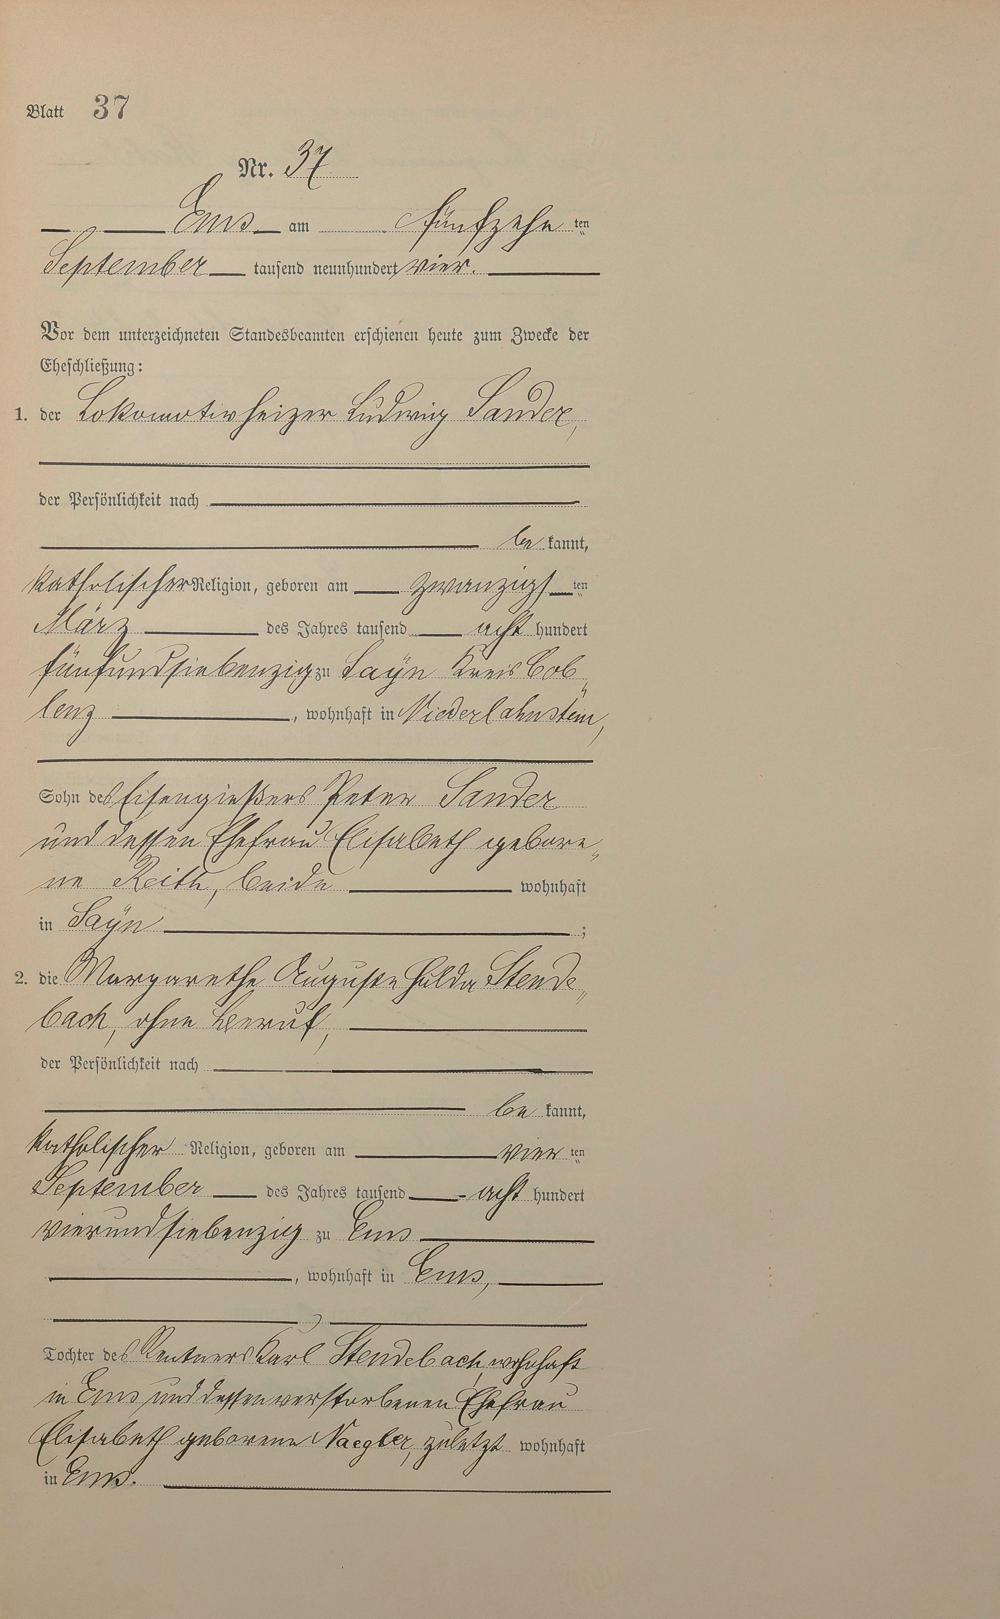 Blatt 37
Nr. 37
Ems am fünfzehnten
September tausend neunhundert vier.
Vor dem unterzeichneten Standesbeamten erschienen heute zum Zwecke der
Eheschließung:
1. der Lokomotivheizer Ludwig Sander,
der Persönlichkeit nach
be kannt,
katholischer Religion, geboren am zwanzigsten
März des Jahres tausend acht hundert
fünfundsiebenzig zu Sayn Kreis Cob„
lenz, wohnhaft in Niederlahnstein,
Sohn des Eisengießers Peter Sander
und dessen Ehefrau Elisabeth gebore„
ne Reith, beide wohnhaft
in Sayn ;
2. die Margarethe Auguste Hulda Stende„
bach, ohne Beruf,
der Persönlichkeit nach
be kannt,
katholischer Religion, geboren am vierten
September des Jahres tausend acht hundert
vierundsiebenzig zu Ems
, wohnhaft in Ems,
Tochter des Rentners Karl Stendebach, wohnhaft
in Ems und dessen verstorbenen Ehefrau
Elisabeth geborene Naegler, zuletzt wohnhaft
in Ems.